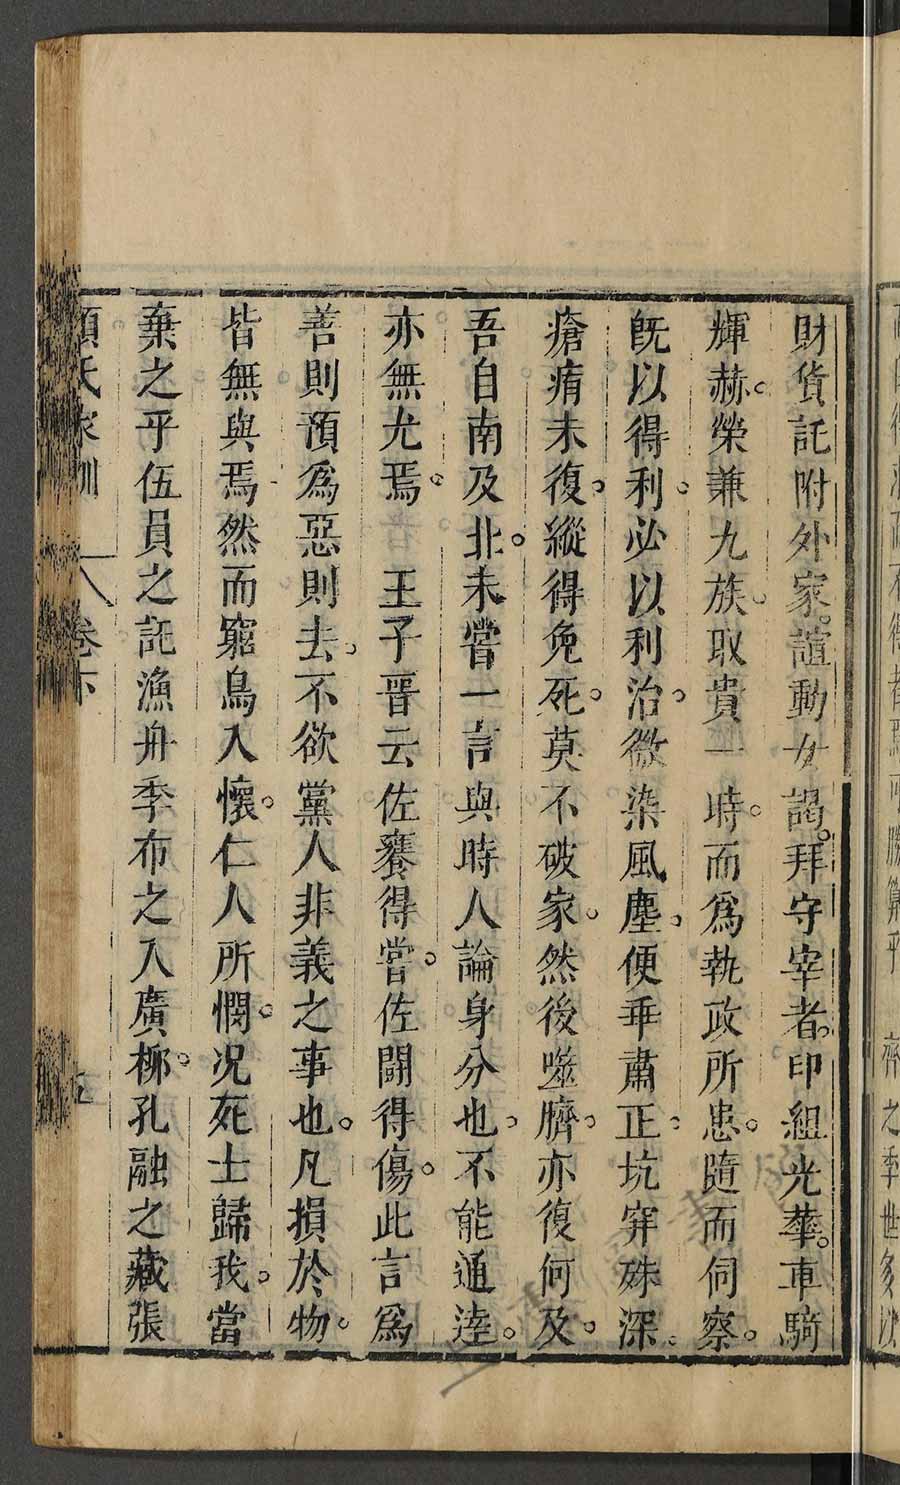 財貨託附外家。諠動女謁。拜守宰者。印組光華。車騎
輝赫。榮兼九族。取貴一時。而爲執政所患。隨而伺察。
旣以得利。必以利治。微染風塵。便乖肅正。坑穽殊深。
瘡痏未復。縱得免死。莫不破家。然後噬臍。亦復何及。
吾自南及北。未嘗一言與時人論身分也。不能通達。
亦無尤焉。 王子晉云佐饔得嘗。佐鬬得傷。此言爲
善則預爲惡則去。不欲黨人非義之事也。凡損於物。
皆無與焉。然而窮鳥入懷。仁人所憫。况死士歸我。當
棄之乎伍員之託漁舟季布之入廣栁。孔融之藏張
顏氏家訓 卷下